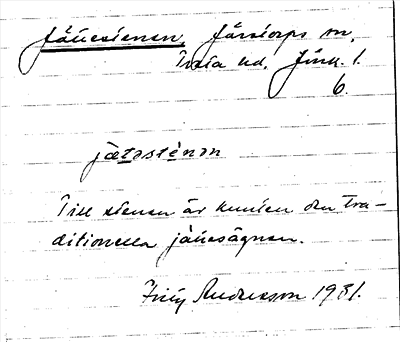 Jättestenen, Järstorps sn,
Tveta hd, Jönk. l.
6.
jætəsténən
Till stenen är knuten den tra-
ditionella jättesägnen.
Andersson 1931.